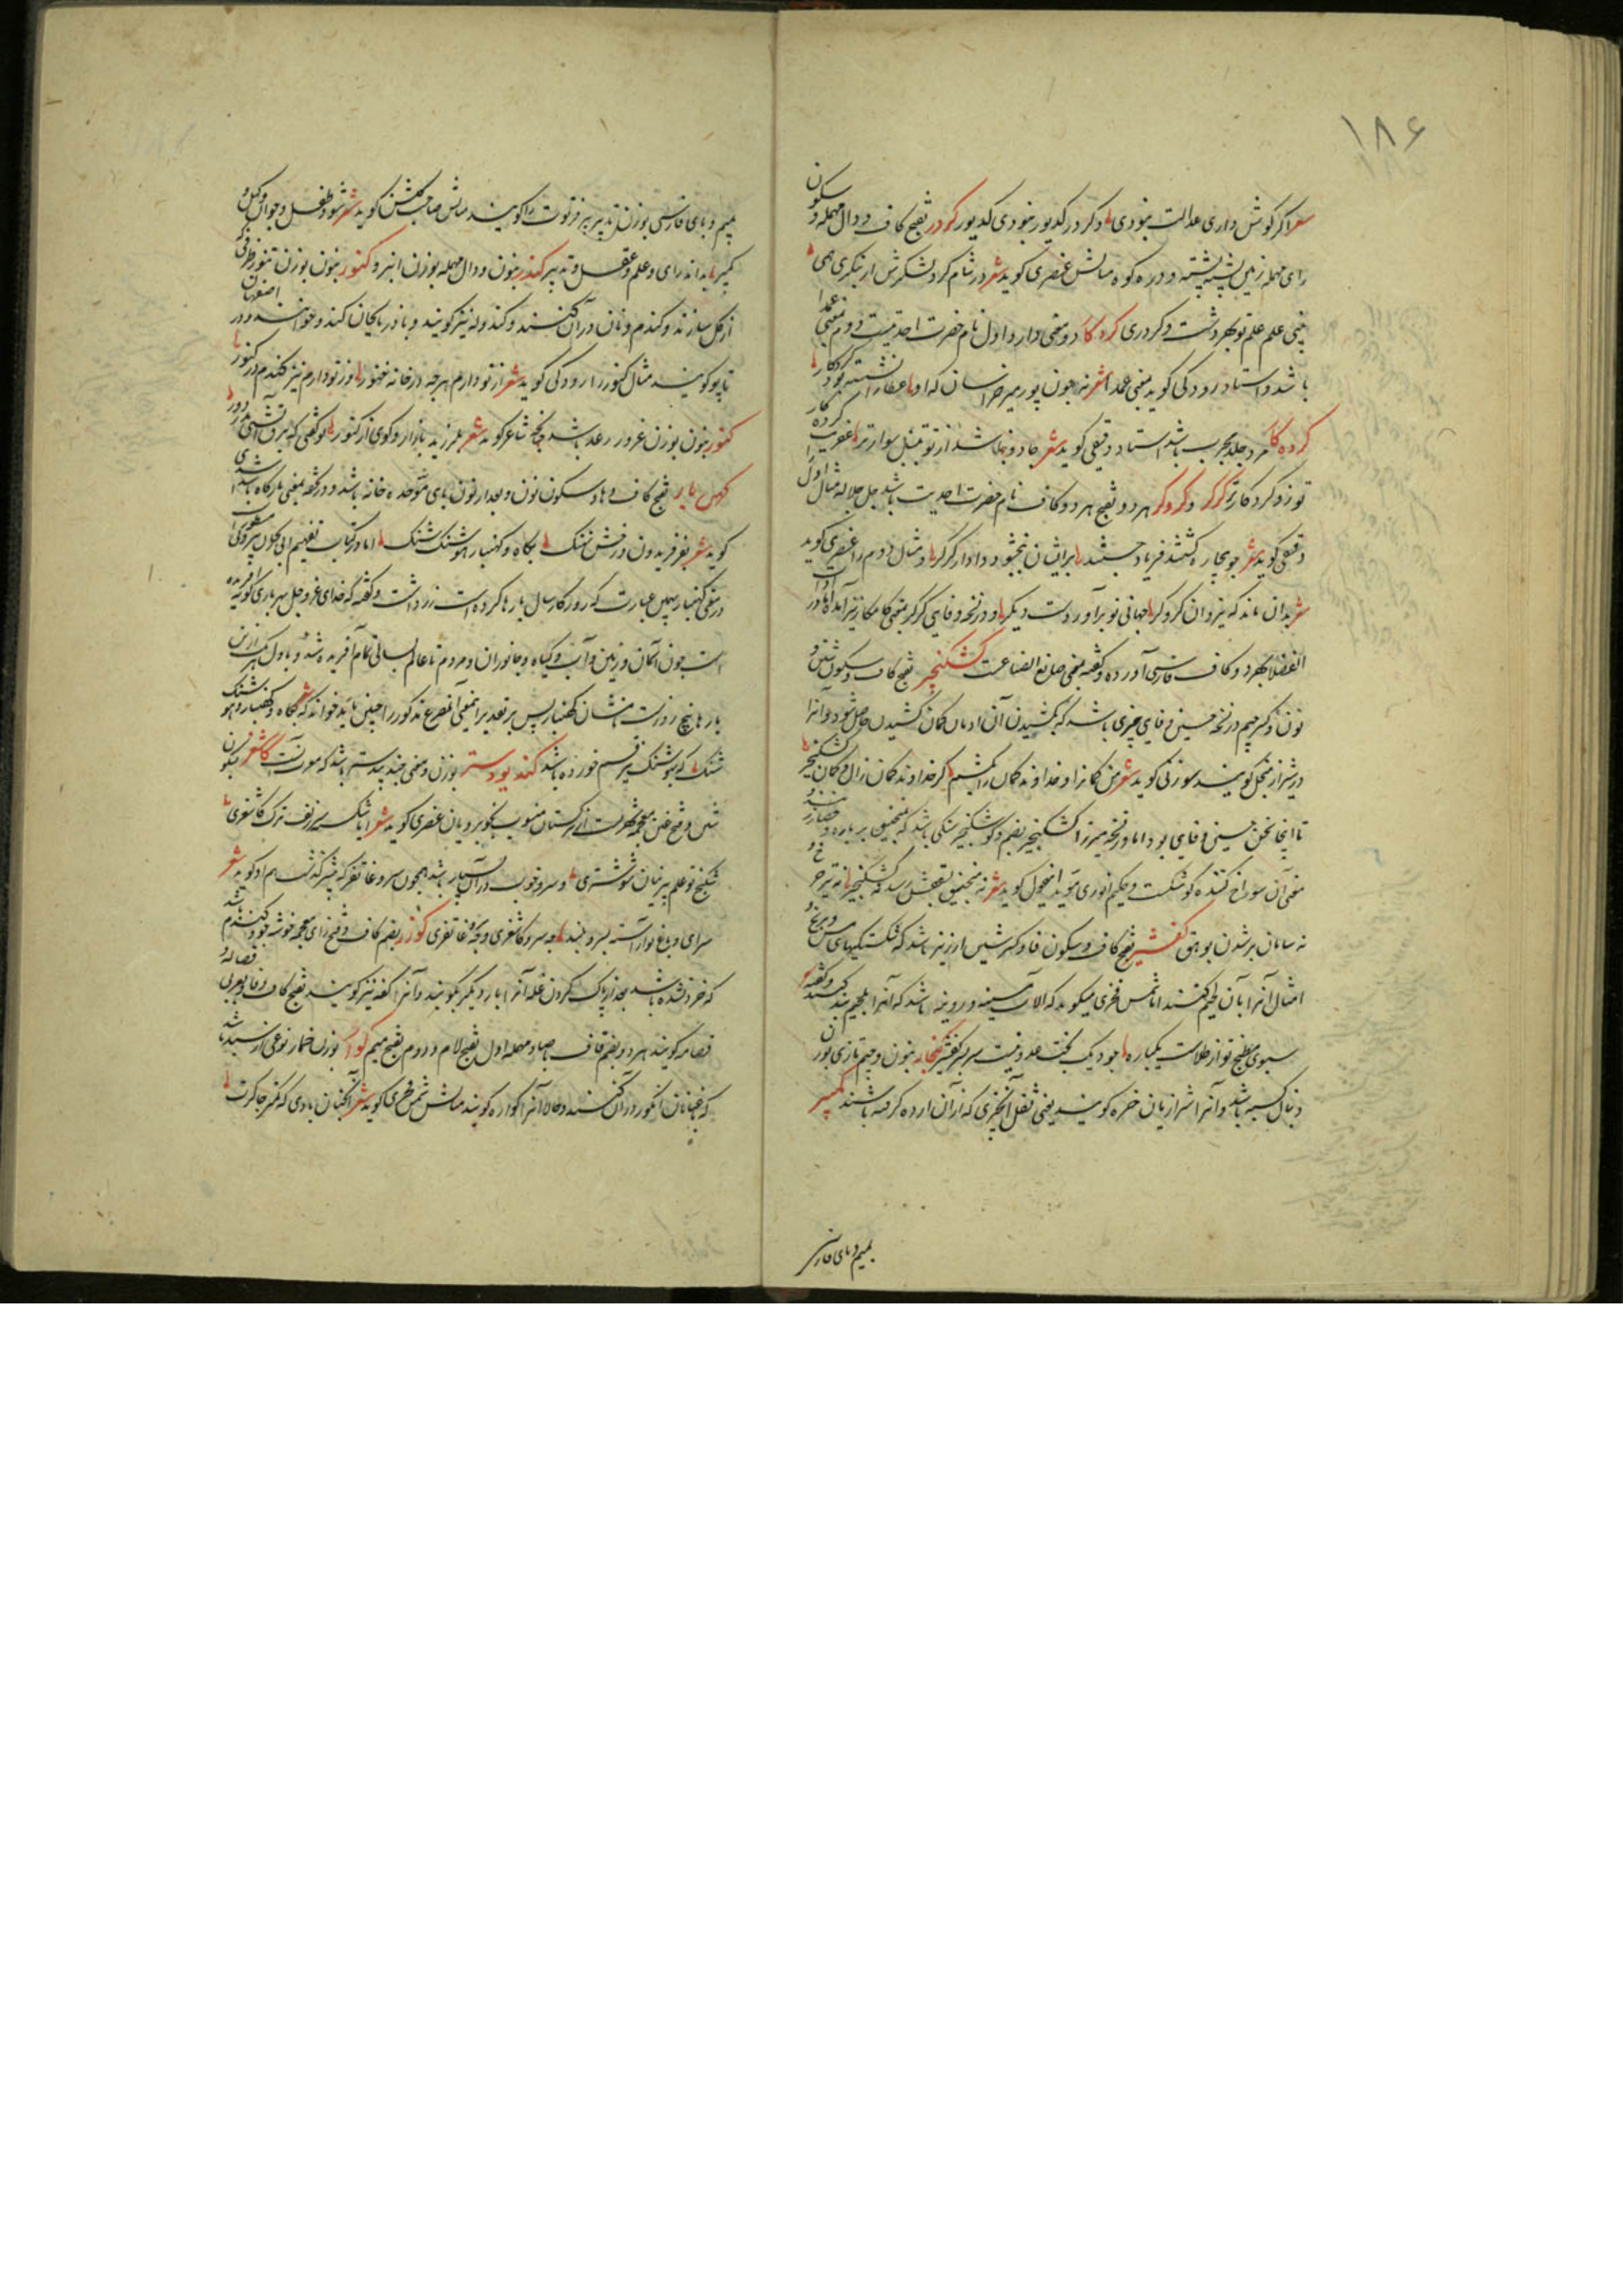 ۱۸۶
شعر اگر گوش داری عدالت بنودی وگر در کدیور بنودی کدیور کردر بفتح کاف و دال مهمله و سکون
رای مهمله زمین پشته پشته و دره کوه مثالش عنصری گوید شعر در شام کرد لشکرش ار بنگری همی
بینی علم علم تو بهر دشت و کردری کردگار دو معنی دارد اول نام حضرت احدیت دوم بمعنی عمدا
باشد و استاد رودکی گوید بمعنی عمدا شعر نه چون پور میر خراسان که او عطا را نشسته بود کردگار
کرده کار مرد جلد مجرب باشد استاد دقیقی گوید شعر جادو نباشد از تو بتنبل سوارتر عفریت کرده کار
تو زو کرده کارتر گرگر و گروگر هر دو بفتح هر دو کاف نام حضرت احدیت باشد جل جلاله مثال اول را
دقیقی گوید شعر چو بیچاره گشتند فریاد جستند برایشان ببخشود دادار گرگر و مثال دوم را عنصری گوید
شعر بدان ماند که یزدان گروگر جهانی نو برآوردست دیگر و در نسخه وفایی گرگر بمعنی کامکار نیز آمده اما در ادات
الفضلا بهر دو کاف فارسی آورده و گفته بمعنی صانع الصناعت کشکنجیر بفتح کاف و سکون شین و
نون و کسر جیم در نسخه حسین وفایی چیزی باشد که بکشیدن آن ادمان کمان کشیدن حاصل شود و آنرا
در شیراز منجل گویند سوزنی گوید شعر من کمانرا و خداوند کمان را بکشم گر خداوند کمان زال و کمان کشکنجیر
تا اینجا سخن حسین وفایی بود اما در نسخه میرزا کشکنجیر بضم و کوشکنجیر سنگی باشد که بمنجنیق بر باره و حصار زنند و
معنی آن سوراخ کننده کوشکست و حکیم انوری مؤید این قول گوید شعر نه منجنیق بسقفش رسد نه کشکنجیر نه تیر چرخ و
نه سامان بر شدن بوهق کفشیر بفتح کاف و سکون فا و کسر شین ارزیز باشد که شکستگیهای مس و برنج و
امثال آنرا بآن لحیم کنند اما شمس فخری میگوید که آلات مسینه و رویینه باشد که آنرا بلحیم بند کنند و گفته
سبوی مطبخ تو از طلاست یکباره چو دیگ تخت عدو نیست سربسر کفشیر کنجار بنون و جیم تازی بوزن
دنبال کسبه باشد و آنرا شیرازیان خره گویند یعنی ثفل آنچیزی که از آن ارده گرفته باشند کمپیر
بمیم و بای فارسی
بمیم و بای فارسی بوزن تدبیر پیر فرتوت را گویند مثالش صاحب گلشن گوید شعر شود طفل و جوان و کهل و
کمپیر بداند رای و علم و عقل و تدبیر کندر بنون و دال مهمله بوزن انبر و کنور بنون بوزن تنور ظرفی که
از گل سازند و گندم و نان در آن کنند و کندوله نیز گویند و باذربایجان کند و خوانند و در اصفهان
تاپو گویند مثال کنور را رودکی گوید شعر از تو دارم هرچه در خانه خنور وز تو دارم نیز گندم در کنور
کنور بنون بوزن غرور رعد باشد چنانچه شاعر گوید شعر بلرزید بازار و کوی از کنور تو گفتی که برق آتشی زد ز دور
کهن بار بفتح کاف و ها و سکون نون و بعد از نون بای موحده خانه باشد و در تحفه بمعنی بارگاه باشد اسدی
گوید شعر بفر فریدون درفش فشنگ بگاه و کهنبار هوشنگ شنگ اما در کتاب تفهیم ابی ریحان بیرونی مسطور است
در معنی گهنبار بهمین عبارت که روزگار سال پارها کرده است زردشت و گفته که خدای عز و جل بهر پاری گونه آفریده
است چون آسمان و زمین و آب و گیاه و جانوران و مردم تا عالم بسالی تمام آفریده شد و باول هر یک ازین
پارها پنج روزست نامشان گهنبار پس بر تقدیر این معنی آن مصرع مذکور را چنین باید خواند که شعر بگاه و کهنبار و هوشنگ
شنگ که بهوشنگ نیز قسم خورده باشد کند بیودستر بوزن و معنی جند بیدستر باشد که معرب آنست کاشغر بسکون
شین و فتح غین معجمه شهریست از ترکستان منسوب بخوبرویان عنصری گوید شعر ایا شکسته سر زلف ترک کاشغری
شکنج تو علم پرنیان شوشتری و سرو خوب در آن بسیار باشد همچون سرو غاتفر که پیشتر گذشت هم او گوید شعر
سرای و باغ تو آراسته بسرو بلند چه سرو کاشغری و چه غاتفری کوزر بضم کاف و فتح زای معجمه خوشه جو و گندم
که خرد نشده باشد بعد از پاک کردن غله آنرا بار دیگر بکوبند و آنرا کفه نیز گویند بفتح کاف و فا و بعربی قصاله و
قصامه گویند هر دو بضم قاف و صاد مهمله اول بفتح لام و دوم بفتح میم کوار بوزن خمار نوعی از سبد باشد
که باغبانان انگور در آن کنند و حالا آنرا کواره گویند مثالش شمس فخری گوید شعر آنچنان بادی که کمتر چاکرت